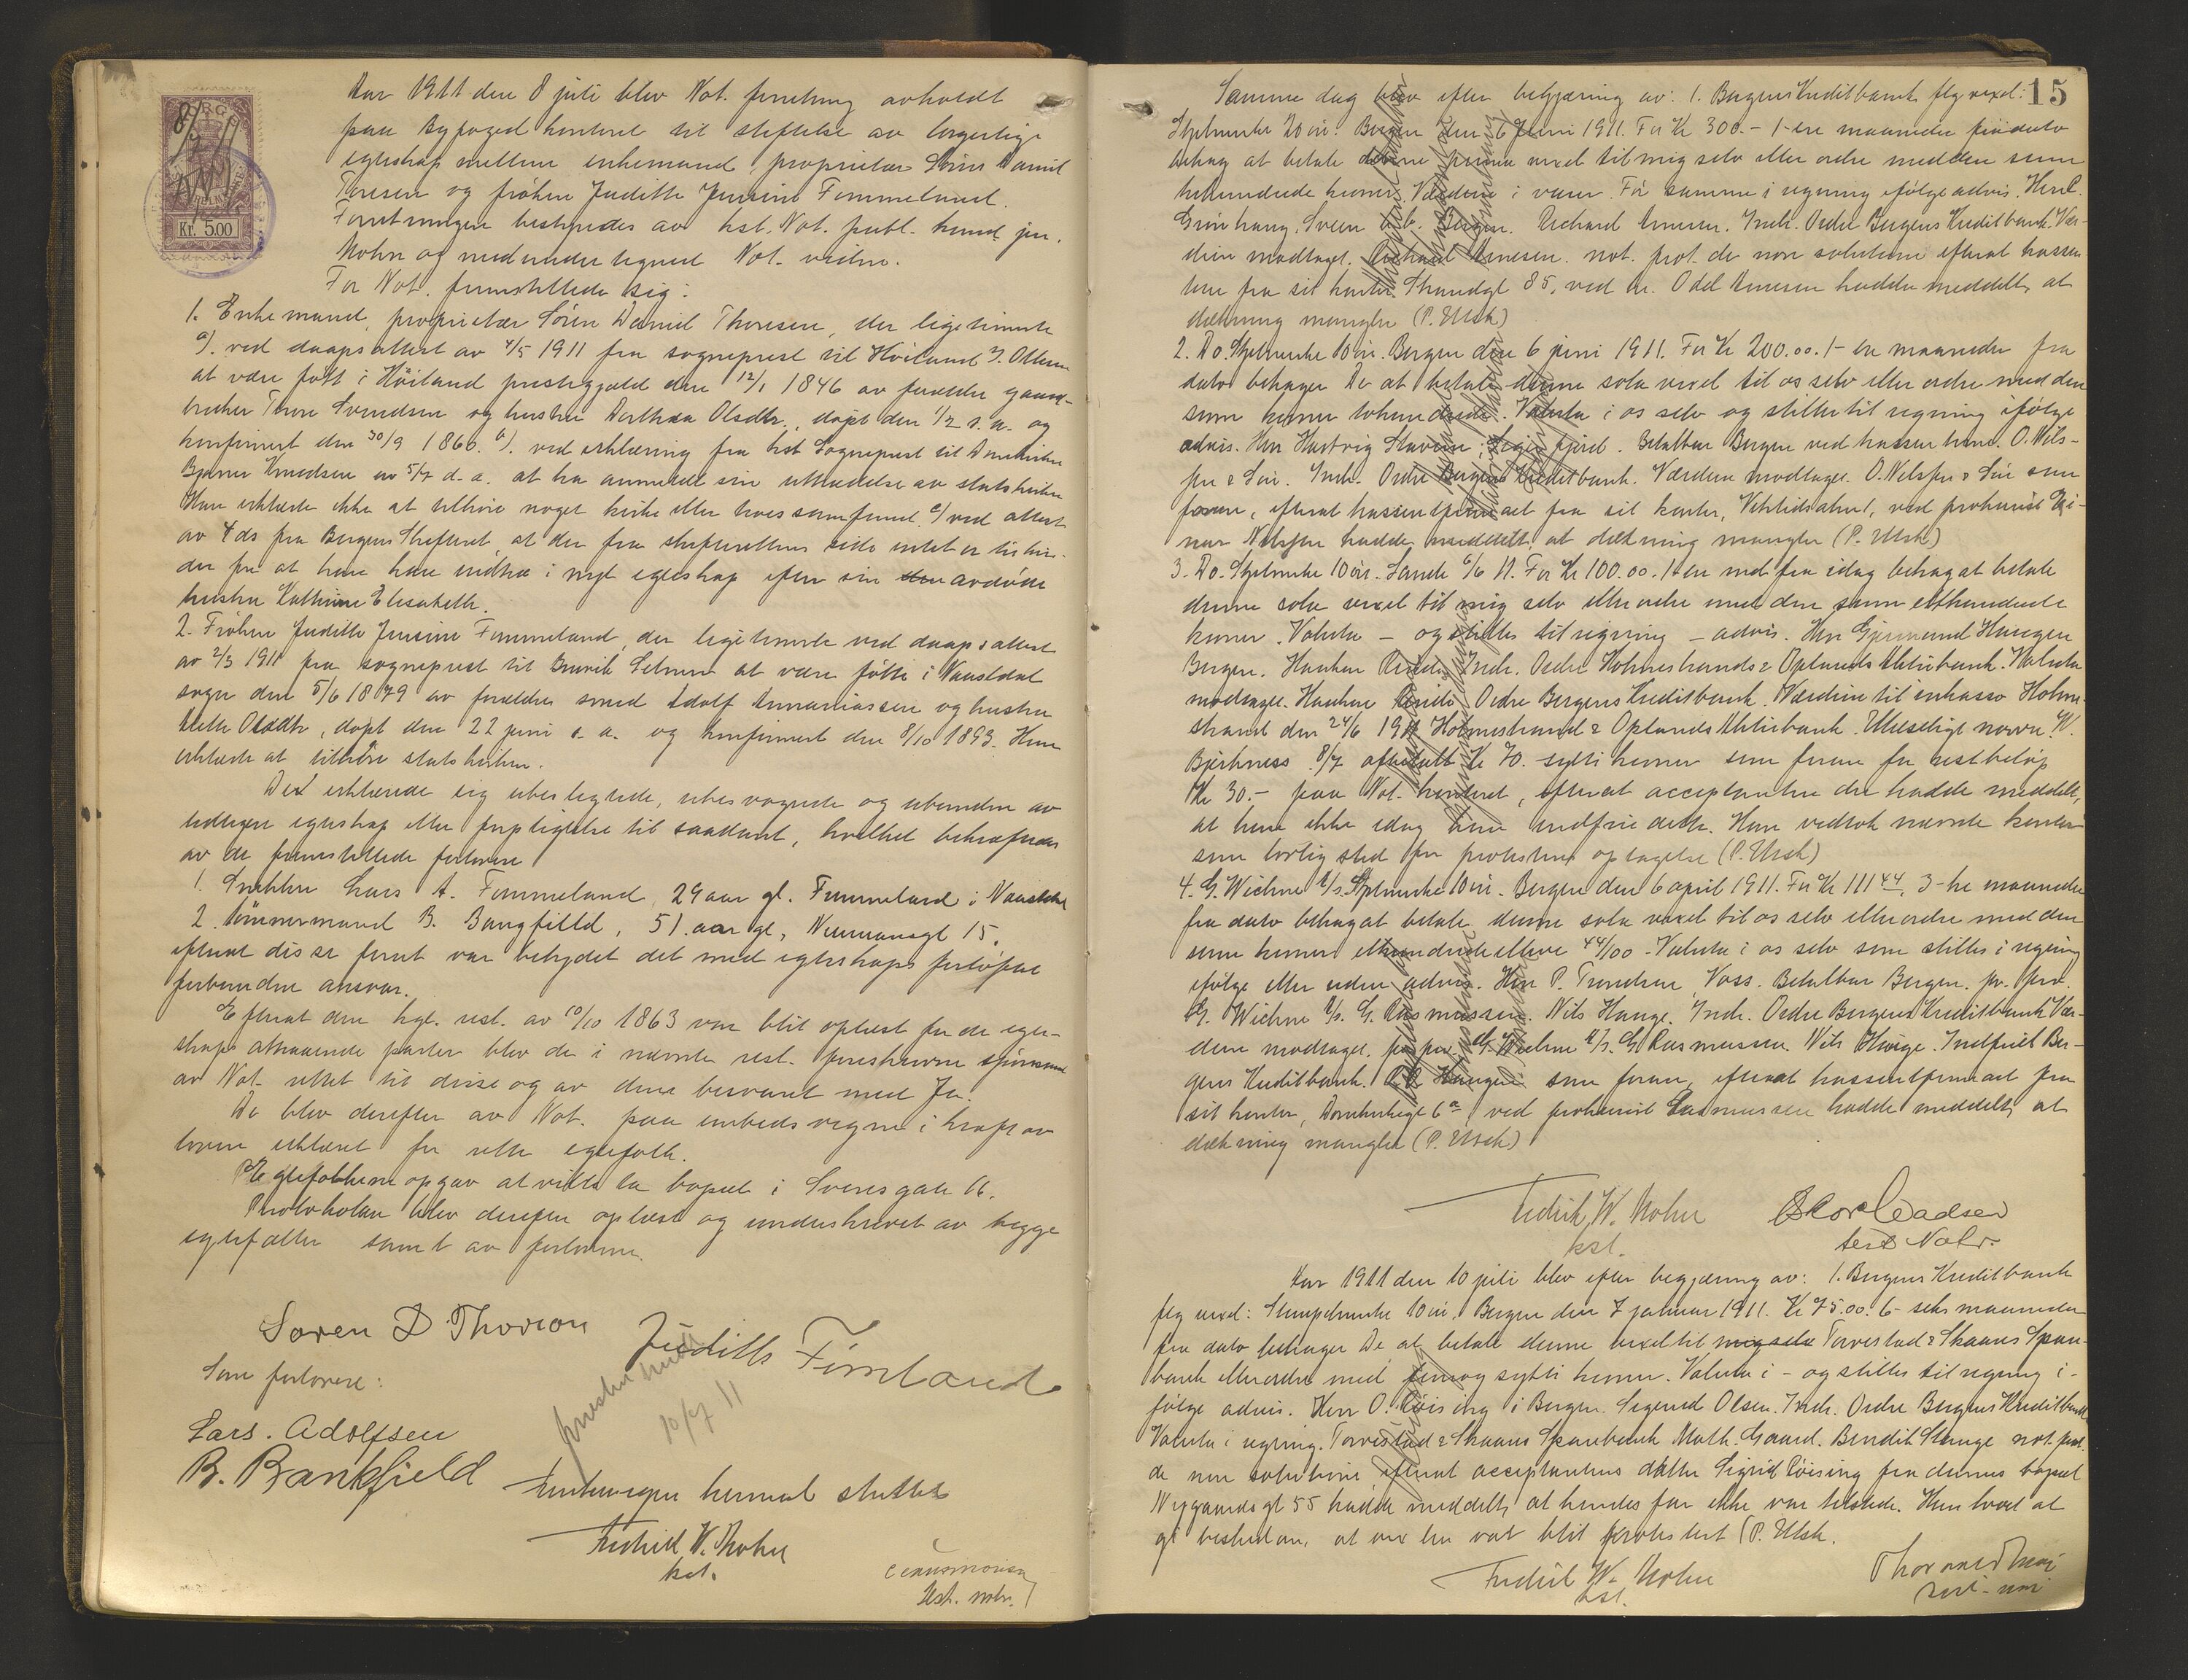 Aar 1911 den 8 juli blev Not. forretning avholdt
paa Byfoged kontoret til stiftelse av borgerlig
egteskap mellem enkemand, proprietær Sören Daniel
Toresen og fröken Judithe Jensine Fimmeland.
Forretningen bestyredes av kst. Not. publ. 
Mohn og medundertegnede Not. vidne.
For Not. fremstillede sig:
1. Enkemand, proprietær Sören Daniel Thoresen, der legitimerte
a). ved daapsattest av 4/5 1911 fra sogneprest til Höiland J. Olsen
at være födt i Höiland prestegjæld den 12/1 1846 av forældre gaard-
bruker Tore Svendsen og hustru Dorthea Olsdtr., döpt den 1/2 s.a. og
konfirmert den 30/9 1860. b). ved erklæring fra kst. Sogneprest til Domkirken
Bjarne Knudsen av 5/7 d.a. at ha anmeldt sin uttrædelse av statskirken
Han erklærte ikke at tilhöre noget kirke eller troessamfund. c) ved attest
av 4 ds fra Bergens Skifteret, at der fra skifterettens side intet er til hin-
der for at han kan indtræ i nyt egteskap efter sin avdöde
hustru Kathrine Elisabeth.
2. Fröken Judithe Jensine Fimmeland, der legitimerte ved daapsattest
av 2/3 1911 fra sogneprest til at være född i Naustdal
sogn den 5/6 1879 av forældre smed Adolf Annaniassen og hustru
Olsdtr, döpt den 22 juni s.a. og konfirmert den 8/10 1893. Hun
erklærte at tilhöre statskirken.
De erklærede sig ubeslegtede, ubesvogrede og ubundne av
tidligere egteskap eller forpligtelse til saadant, hvilket bekræftedes
av de fremstillede forlovere
1. Snekker Lars A. Fimmeland, 29 aar gl. Fimmeland i Naustdal
2. tömmermand B. Bangfield, 51 aar gl, Neumansgt 15,
efterat disse forut var betydet det med egteskaps forlöfte
forbundne ansvar.
Efterat den kgl. res. av 10/10 1863 var blit oplæst for de egte-
skaps attraaende parter blev de i nævnte res. foreskrevne spörsmaal
av Not. rettet til disse og av dem besvaret med Ja.
De blev derefter av Not. paa embeds vegne i kraft av
loven erklæret for rette egtefolk.
Egtefolkene opgav at ville ta bopæl i Sverresgate 16.
Protokollen blev derefter oplæst og underskrevet av begge
egtefæller samt av forloverne.
Soren D Thorson
Judith Fimland
Som forlovere:
Lars. Adolfsen
B. Bankfield
10/7 11
Forretningen hermed sluttet
Fredrik W. Mohn
kst.
NORGE
8/7 11
Kr. 5.00
15
Samme dag blev efter begjæring av: 1. Bergens Kreditbank flg vexel:
Stpl.merke 20 öre. Bergen den 6 Juni 1911. For Kr 300.- 1-en maaneder fra dato
behag at betale denne prima vexel til mig selv eller ordre med den sum
trehundrede kroner. Værdien i varer. För samme i regning efölge advis. Herr
Grönhaug, Sveen Bergen. Richard Arnesen. Indr. Ordre Bergens Kreditbank. Vær-
dien modtaget. Richard Arnesen. not. prot. de non solutione efterat kassen-
ten fra sit kontor Strandgt 85, ved hr. Odd Arnesen hadde meddelt, at
dækning mangler (P. Utsk)
2. Do. Stpl.merke 10 öre. Bergen den 6 juni 1911. For Kr 200.00. 1- en maaneder fra
dato behager De at betale denne sola vexel til os selv eller ordre med den
sum kroner tohundrede. Valuta i os selv og stilles til regning ifölge
advis. Herr Hartvig . Betalbar Bergen ved kassenterne. O. Nils-
sen & Sön. Indr. Ordre Bergens Kreditbank. Værdien modtaget. O. Nilssen & Sön som
foran, efterat kassentfirmaet fra sit kontor, , ved prokurist Ei-
nar Nilssen hadde meddelt at dækning mangler (P. Utsk)
3. Do. Stpl.merke 10 öre. Sande 6/6 11. For Kr 100.00. 1-en md fra idag behag at betale
denne sola vexel til mig selv eller ordre med den sum etthundrede
kroner. Valuta - og stilles til regning - advis. Herr Gjermund Haugen
Bergen. Haakon . Indr. Ordre Holmestrands & Oplands Aktiebank. Valuta
modtaget. Haakon . Ordre Bergens Kreditbank. Værdien til inkasso Holme-
strand den 24/6 1911 Holmestrand & Oplands Aktiebank. Ulæselige navne. W.
Bjerkness. 8/7 afbetalt Kr 70. sytti kroner som foran for restbelöp
Kr 30.- paa Not. kontoret, efterat acceptanten der hadde meddelt,
at han ikke idag kan indfri dette. Han vedtok nævnte kontor
som lovlig sted for protestens optagelse (P. Utsk)
4. G. Wiehne A/s. Stpl.merke 10 öre. Bergen den 6 april 1911. For Kr 111 44, 3-tre maaneder
fra dato behag at betale denne sola vexel til os selv eller ordre med den
sum kroner etthundrede elleve 44/100 - Valuta i os selv som stilles i regning
ifölge eller uden advis. Herr P. Trondsen, Voss. Betalbar Bergen. pr. proc.
G. Wiehne A/s. G. Rasmussen. Nils Hauge. Indr. Ordre Bergens Kreditbank Vær-
dien modtaget. pr. proc. G. Wiehne A/s. G Rasmussen. Nils Hauge. Indfriet Ber-
gens Kreditbank. som foran, efterat kassentfirmaet fra
sit kontor, Domkirkegt 6a, ved prokurist Rasmussen hadde meddelt, at
dækning mangler (P. Utsk)
Fredrik W. Mohn
kst.
Aar 1911 den 10 juli blev efter begjæring av: 1. Bergens Kreditbank
flg vexel: Stempelmerke 10 öre. Bergen den 7 januar 1911. Kr 75.00. 6- seks maaneder
fra dato behager De at betale denne vexel til mig selv Torvestad & Skaares Spare-
bank eller ordre med fem og sytti kroner. Valuta i - og stilles til regning i-
fölge advis. Herr O. Röising i Bergen. Sigurd Olsen. Indr. Ordre Bergens Kreditbank
Valuta i regning. Torvestad & Skaares Sparebank Math. Gaard. Bendik Stange not. prot.
de non solutione efterat acceptantens datter Sigrid Röising fra dennes bopæl
Nygaardsgt 55 hadde meddelt, at hendes far ikke var tilstede. Hun lovet at
gi besked om, at vexlen var blit protestert (P. Utsk.
Fredrik W. Mohn
kst.